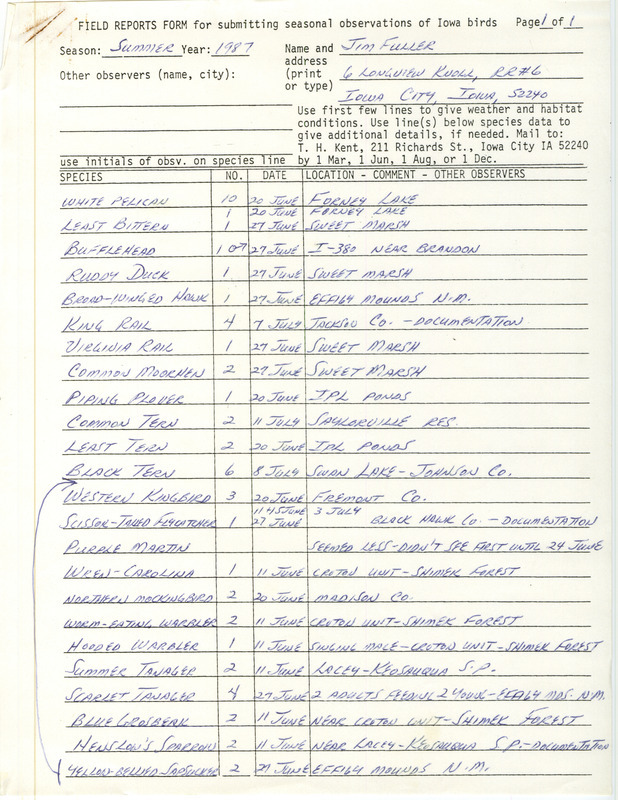 FIELD REPORTS FORM for submitting seasonal observations of Iowa birds Page 1 of 1
Season: SUMMER Year: 1987 Name and JIM FULLER
address
Other observers (name, city): (print 6 LONGVIEW KNOLL, RR#6
or type)
IOWA CITY, IOWA, 52240
Use first few lines to give weather and habitat
conditions. Use line(s) below species data to
give additional details, if needed. Mail to:
T. H. Kent, 211 Richards St., Iowa City IA 52240
use initials of obsv. on species line by 1 Mar, 1 Jun, 1 Aug, or 1 Dec.
SPECIES NO. DATE LOCATION - COMMENT - OTHER OBSERVERS
WHITE PELICAN 10 20 JUNE FORNEY LAKE
1 20 JUNE FORNEY LAKE
LEAST BITTERN 1 27 JUNE SWEET MARSH
BUFFLEHEAD 1 ♂ 27 JUNE I-380 NEAR BRANDON
RUDDY DUCK 1 27 JUNE SWEET MARSH
BROAD-WINGED HAWK 1 27 JUNE EFFIGY MOUNDS N.M.
KING RAIL 4 7 JULY JACKSON CO. - DOCUMENTATION
VIRGINIA RAIL 1 27 JUNE SWEET MARSH
COMMON MOORHEN 2 27 JUNE SWEET MARSH
PIPING PLOVER 1 20 JUNE IPL PONDS
COMMON TERN 2 11 JULY SAYLORVILLE RES.
LEAST TERN 2 20 JUNE IPL PONDS
BLACK TERN 6 8 JULY SWAN LAKE - JOHNSON CO.
WESTERN KINGBIRD 3 20 JUNE FREMONT CO.
3 JULY
SCISSOR-TAILED FLYCATCHER 1 27 JUNE BLACK HAWK CO. - DOCUMENTATION
PURPLE MARTIN SEEMED LESS - DIDN'T SEE FIRST UNTIL 24 JUNE
WREN-CAROLINA 1 11 JUNE CROTON UNIT - SHIMEK FOREST
NORTHERN MOCKINGBIRD 2 20 JUNE MADISON CO.
WORM-EATING WARBLER 2 11 JUNE CROTON UNIT - SHIMEK FOREST
HOODED WARBLER 1 11 JUNE SINGING MALE - CROTON UNIT - SHIMEK FOREST
SUMMER TANAGER 2 11 JUNE LACEY-KEOSAUQUA S.P.
SCARLET TANAGER 4 27 JUNE 2 ADULTS FEEDING 2 YOUNG - EFFIGY MDS. N.M.
BLUE GROSBEAK 2 11 JUNE NEAR CROTON UNIT - SHIMEK FOREST
HENSLOW'S SPARROW 2 11 JUNE NEAR LACEY-KEOSAUQUA S.P. - DOCUMENTATION
YELLOW-BELLIED SAPSUCKER 2 27 JUNE EFFIGY MOUNDS N.M.